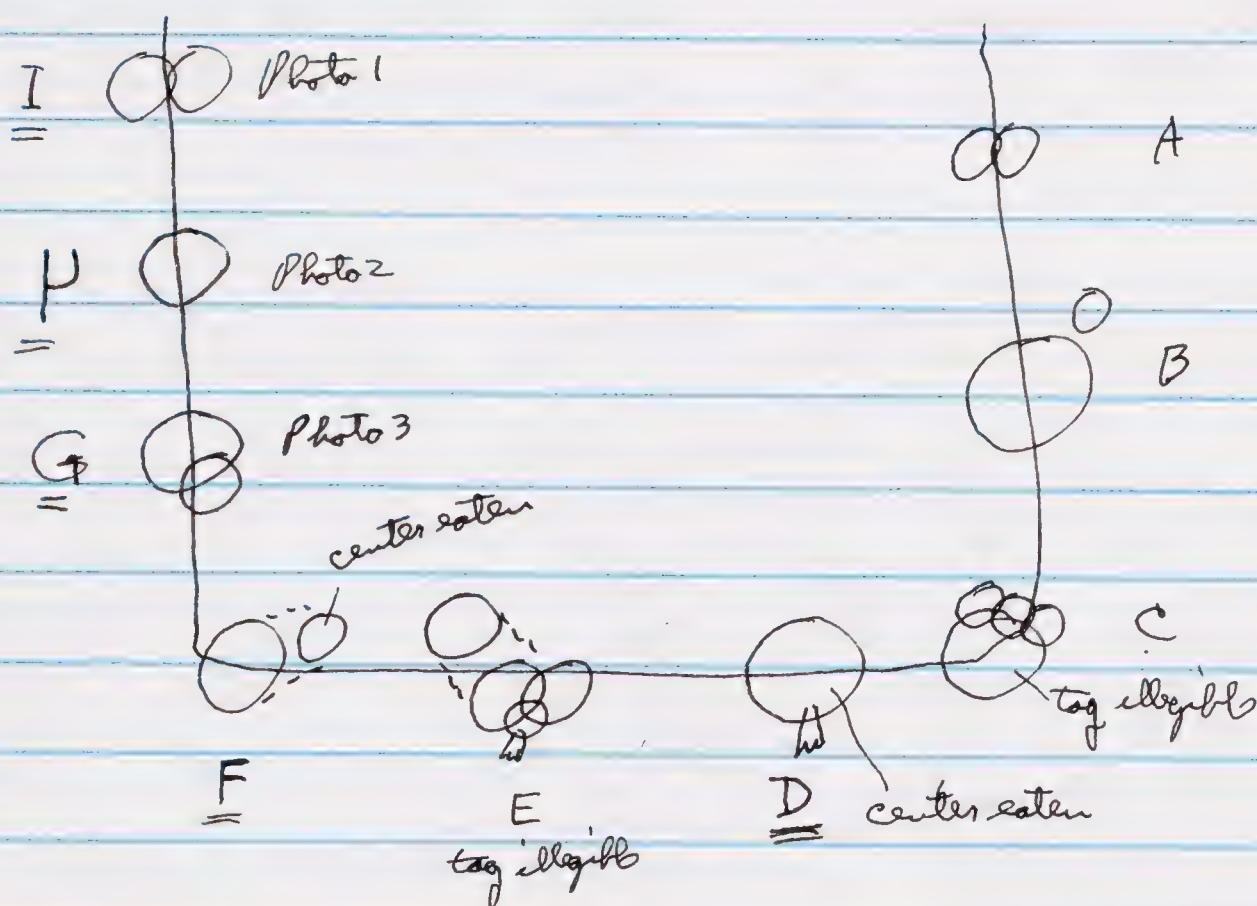 I Photo 1
A
H Photo 2
B
G Photo 3
center eaten
C
tag illegible
F
E
tag illegible
D
center eaten